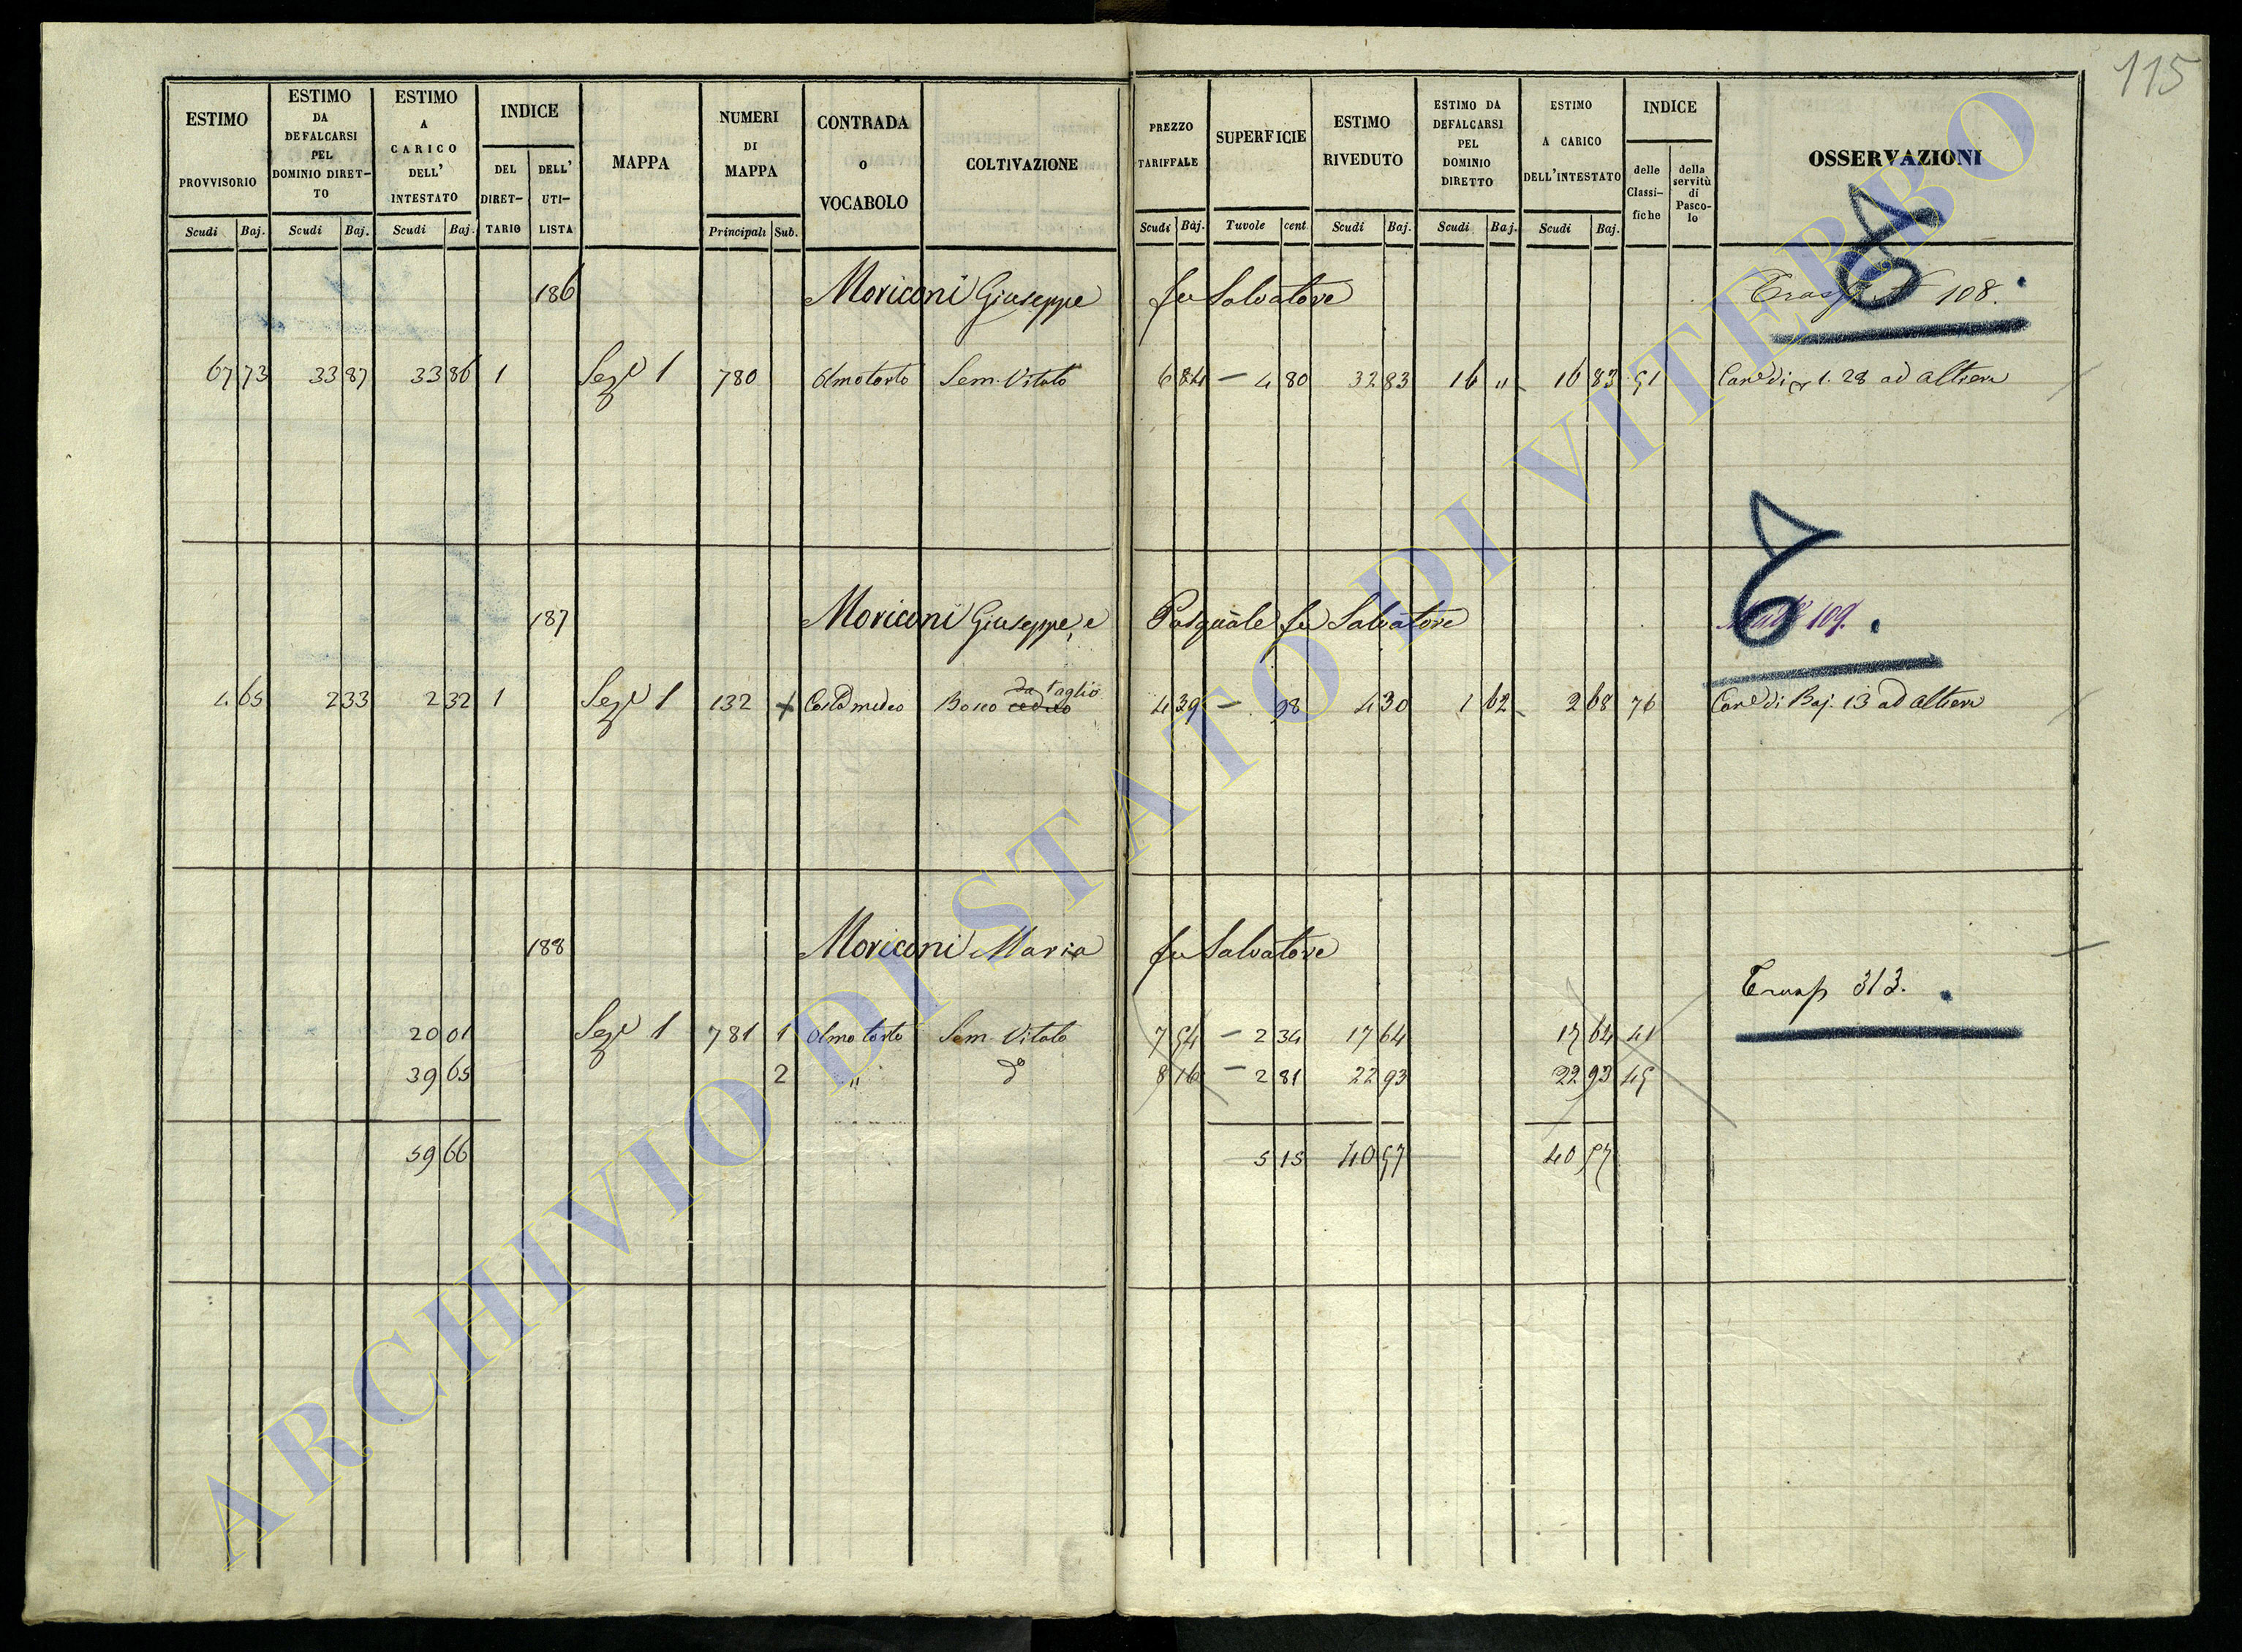 115
ESTIMO PROVVISORIO Scudi Baj.
ESTIMO DA DEFALCARSI PEL DOMINIO DIRET-TO Scudi Baj.
ESTIMO A CARICO DELL' INTESTATO Scudi Baj.
INDICE DEL DIRET-TARIO DELL' UTI-LISTA
MAPPA
NUMERI DI MAPPA Principali Sub.
CONTRADA o VOCABOLO
COLTIVAZIONE
PREZZO TARIFFALE Scudi Baj.
SUPERFICIE Tuvole cent
ESTIMO RIVEDUTO Scudi Baj.
ESTIMO DA DEFALCARSI PEL DOMINIO DIRETTO Scudi Baj.
ESTIMO A CARICO DELL'INTESTATO Scudi Baj.
INDICE delle Classi-fiche della servitù di Pasco-lo
OSSERVAZIONI
186 Moriconi Giuseppe fu Salvatore 108.
67 73 33 87 33 86 1 Sez.e 1 780 Olmotorto Sem. Vitato 6 84 — 4 80 32 83 16 " 16 83 51 1. 28 ad Altieri
187 Moriconi Giuseppe, e Pasquale fu Salvatore 109.
da taglio
4 65 2 33 2 32 1 Sez.e 1 132 Bosco ceduo 4 39 — 98 4 30 1 62 2 68 76 di Baj. 13 ad Altieri
188 Moriconi Maria fu Salvatore
Trasp 313.
20 01 Sez.e 1 781 1 Olmo torto Sem. Vitato 7 54 — 2 34 17 64 17 64 41
39 65 2 " do 8 16 — 2 81 22 93 22 93 45
59 66 5 15 40 57 40 57
ARCHIVIO DI STATO DI VITERBO